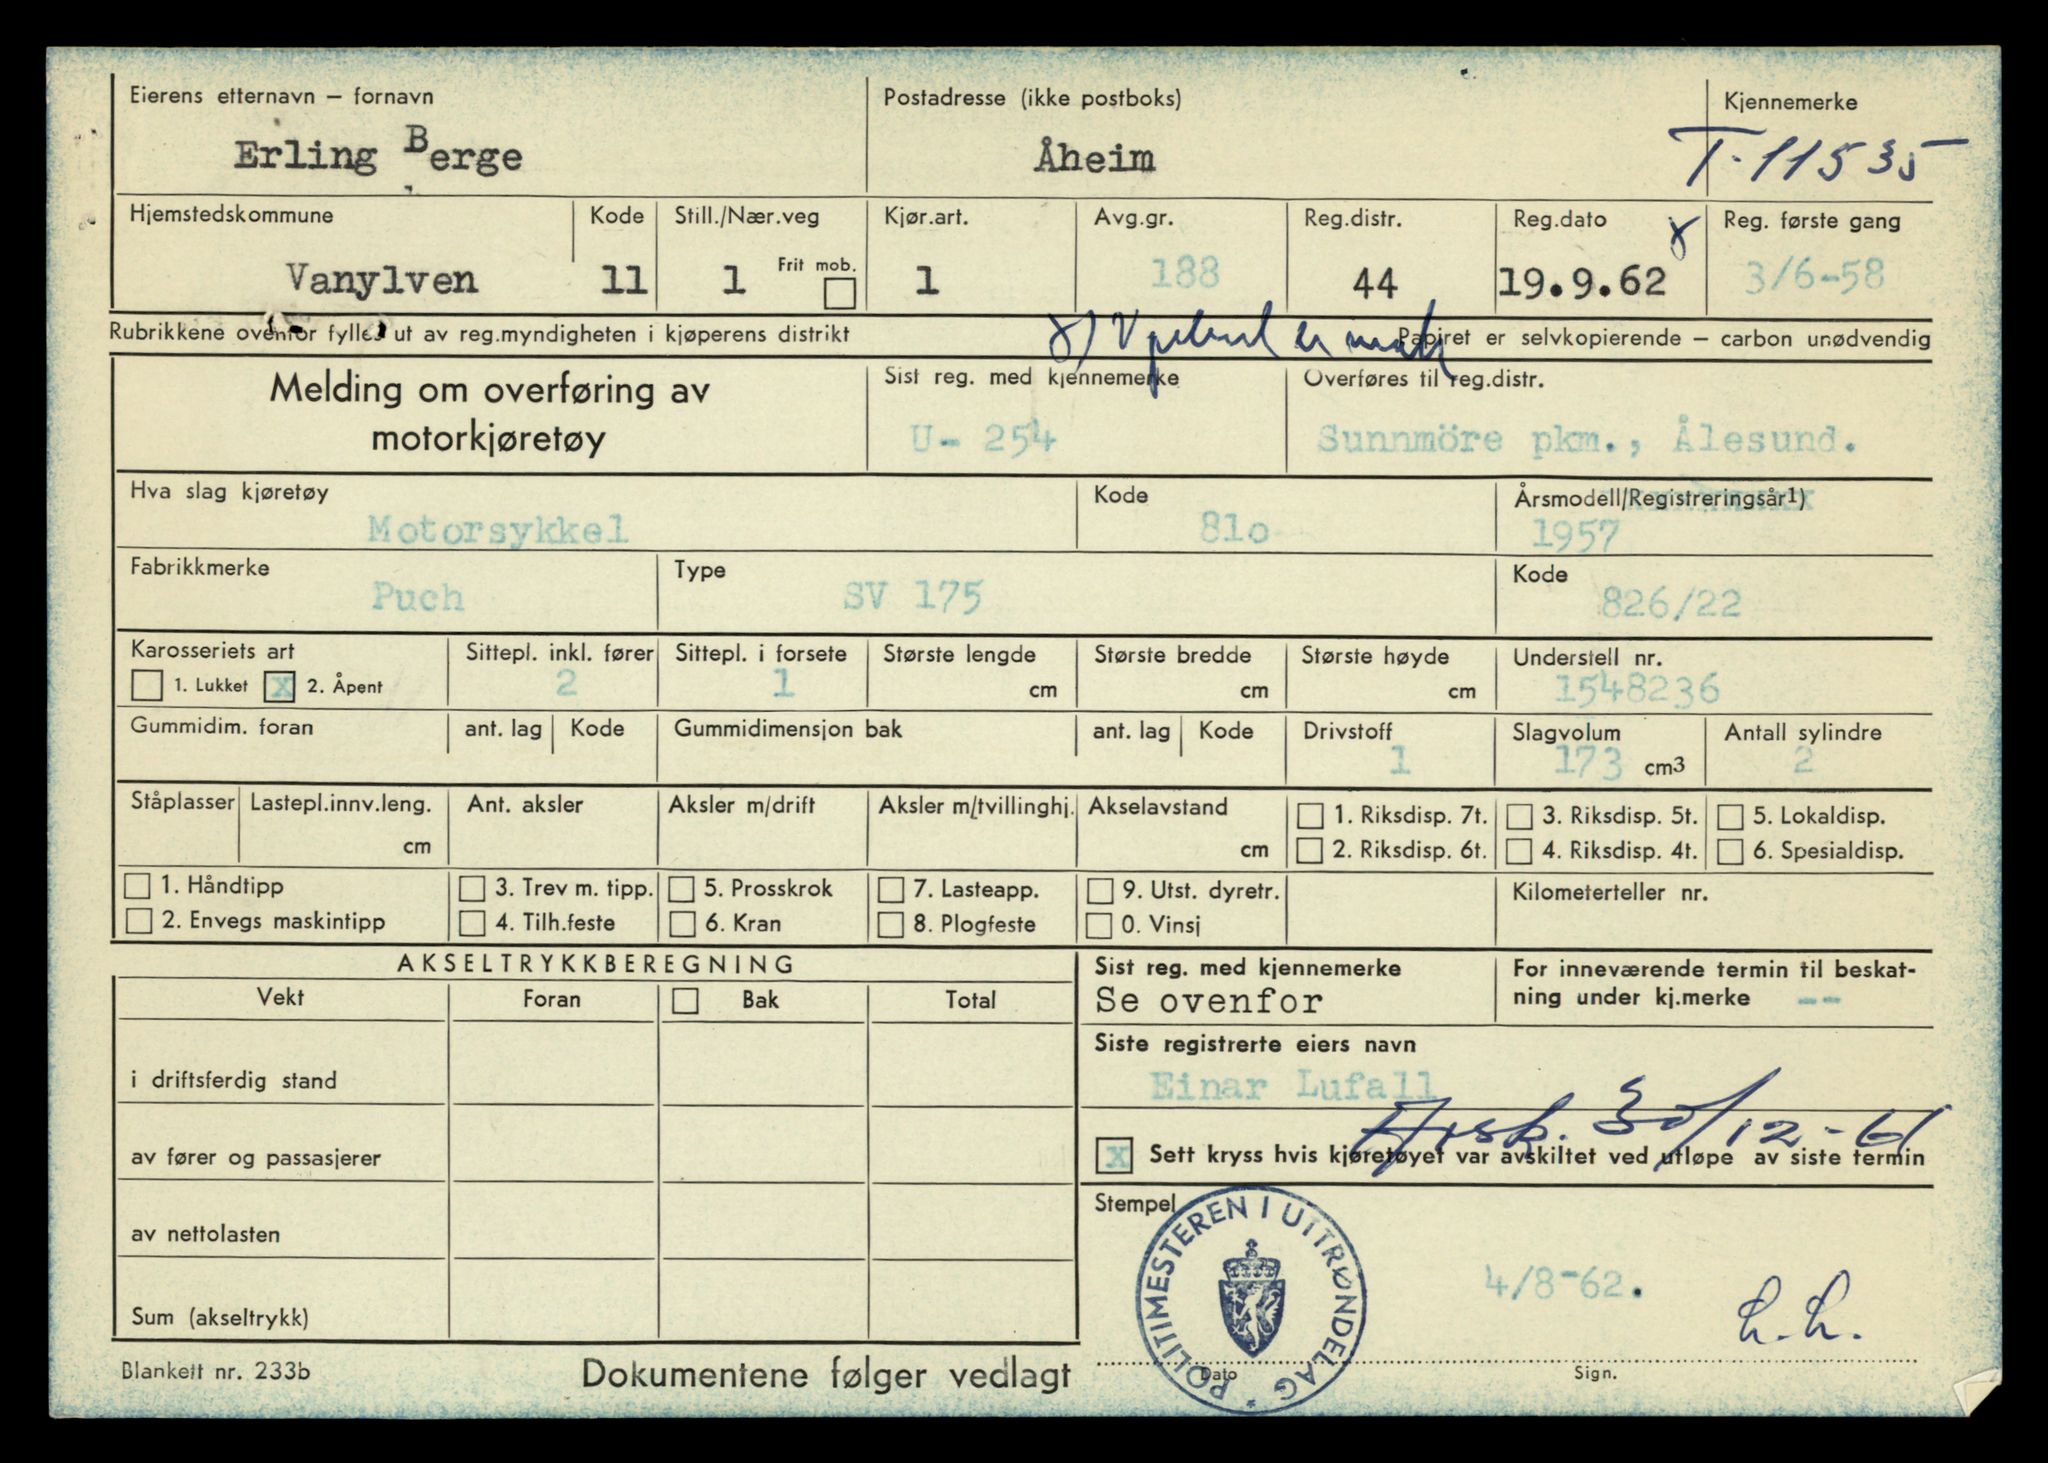 Eierens etternavn – fornavn
Erling Berge
Postadresse (ikke postboks)
Åheim
Kjennemerke
T-11535
Hjemstedskommune
Vanylven
Kode
11
Still./Nær.veg
1 Frit mob.
Kjør.art.
1
Avg.gr.
188
Reg.distr.
44
Reg.dato
19.9.62
Reg. første gang
3/6-58
Rubrikkene ovenfor fylles ut av reg.myndigheten i kjøperens distrikt
Papiret er selvkopierende – carbon unødvendig
Melding om overføring av
motorkjøretøy
Sist reg. med kjennemerke
U- 254
Overføres til reg.distr.
Sunnmöre pkm., Ålesund.
Hva slag kjøretøy
Motorsykkel
Kode
81o
Årsmodell/Registreringsår1)
1957
Fabrikkmerke
Puch
Type
SV 175
Kode
826/22
Karosseriets art
1. Lukket X 2. Åpent
Sittepl. inkl. fører
2
Sittepl. i forsete
1
Største lengde
cm
Største bredde
cm
Største høyde
cm
Understell nr.
1548236
Gummidim. foran
ant. lag Kode
Gummidimensjon bak
ant. lag Kode
Drivstoff
1
Slagvolum
173 cm3
Antall sylindre
2
Ståplasser
Lastepl.innv.leng.
cm
Ant. aksler
Aksler m/drift
Aksler m/tvillinghj.
Akselavstand
cm
1. Riksdisp. 7t.
2. Riksdisp. 6t.
3. Riksdisp. 5t.
4. Riksdisp. 4t.
5. Lokaldisp.
6. Spesialdisp.
1. Håndtipp
2. Envegs maskintipp
3. Trev m. tipp.
4. Tilh.feste
5. Prosskrok
6. Kran
7. Lasteapp.
8. Plogfeste
9. Utst. dyretr.
0. Vinsj
Kilometerteller nr.
AKSELTRYKKBEREGNING
Vekt Foran Bak Total
i driftsferdig stand
av fører og passasjerer
av nettolasten
Sum (akseltrykk)
Sist reg. med kjennemerke
Se ovenfor
For inneværende termin til beskat-
ning under kj.merke --
Siste registrerte eiers navn
Einar Lufall
Avsk. 30/12-61
X Sett kryss hvis kjøretøyet var avskiltet ved utløpe av siste termin
Stempel
POLITIMESTEREN I UTTRØNDELAG *
4/8-62.
h.h.
Dato
Sign.
Blankett nr. 233b
Dokumentene følger vedlagt